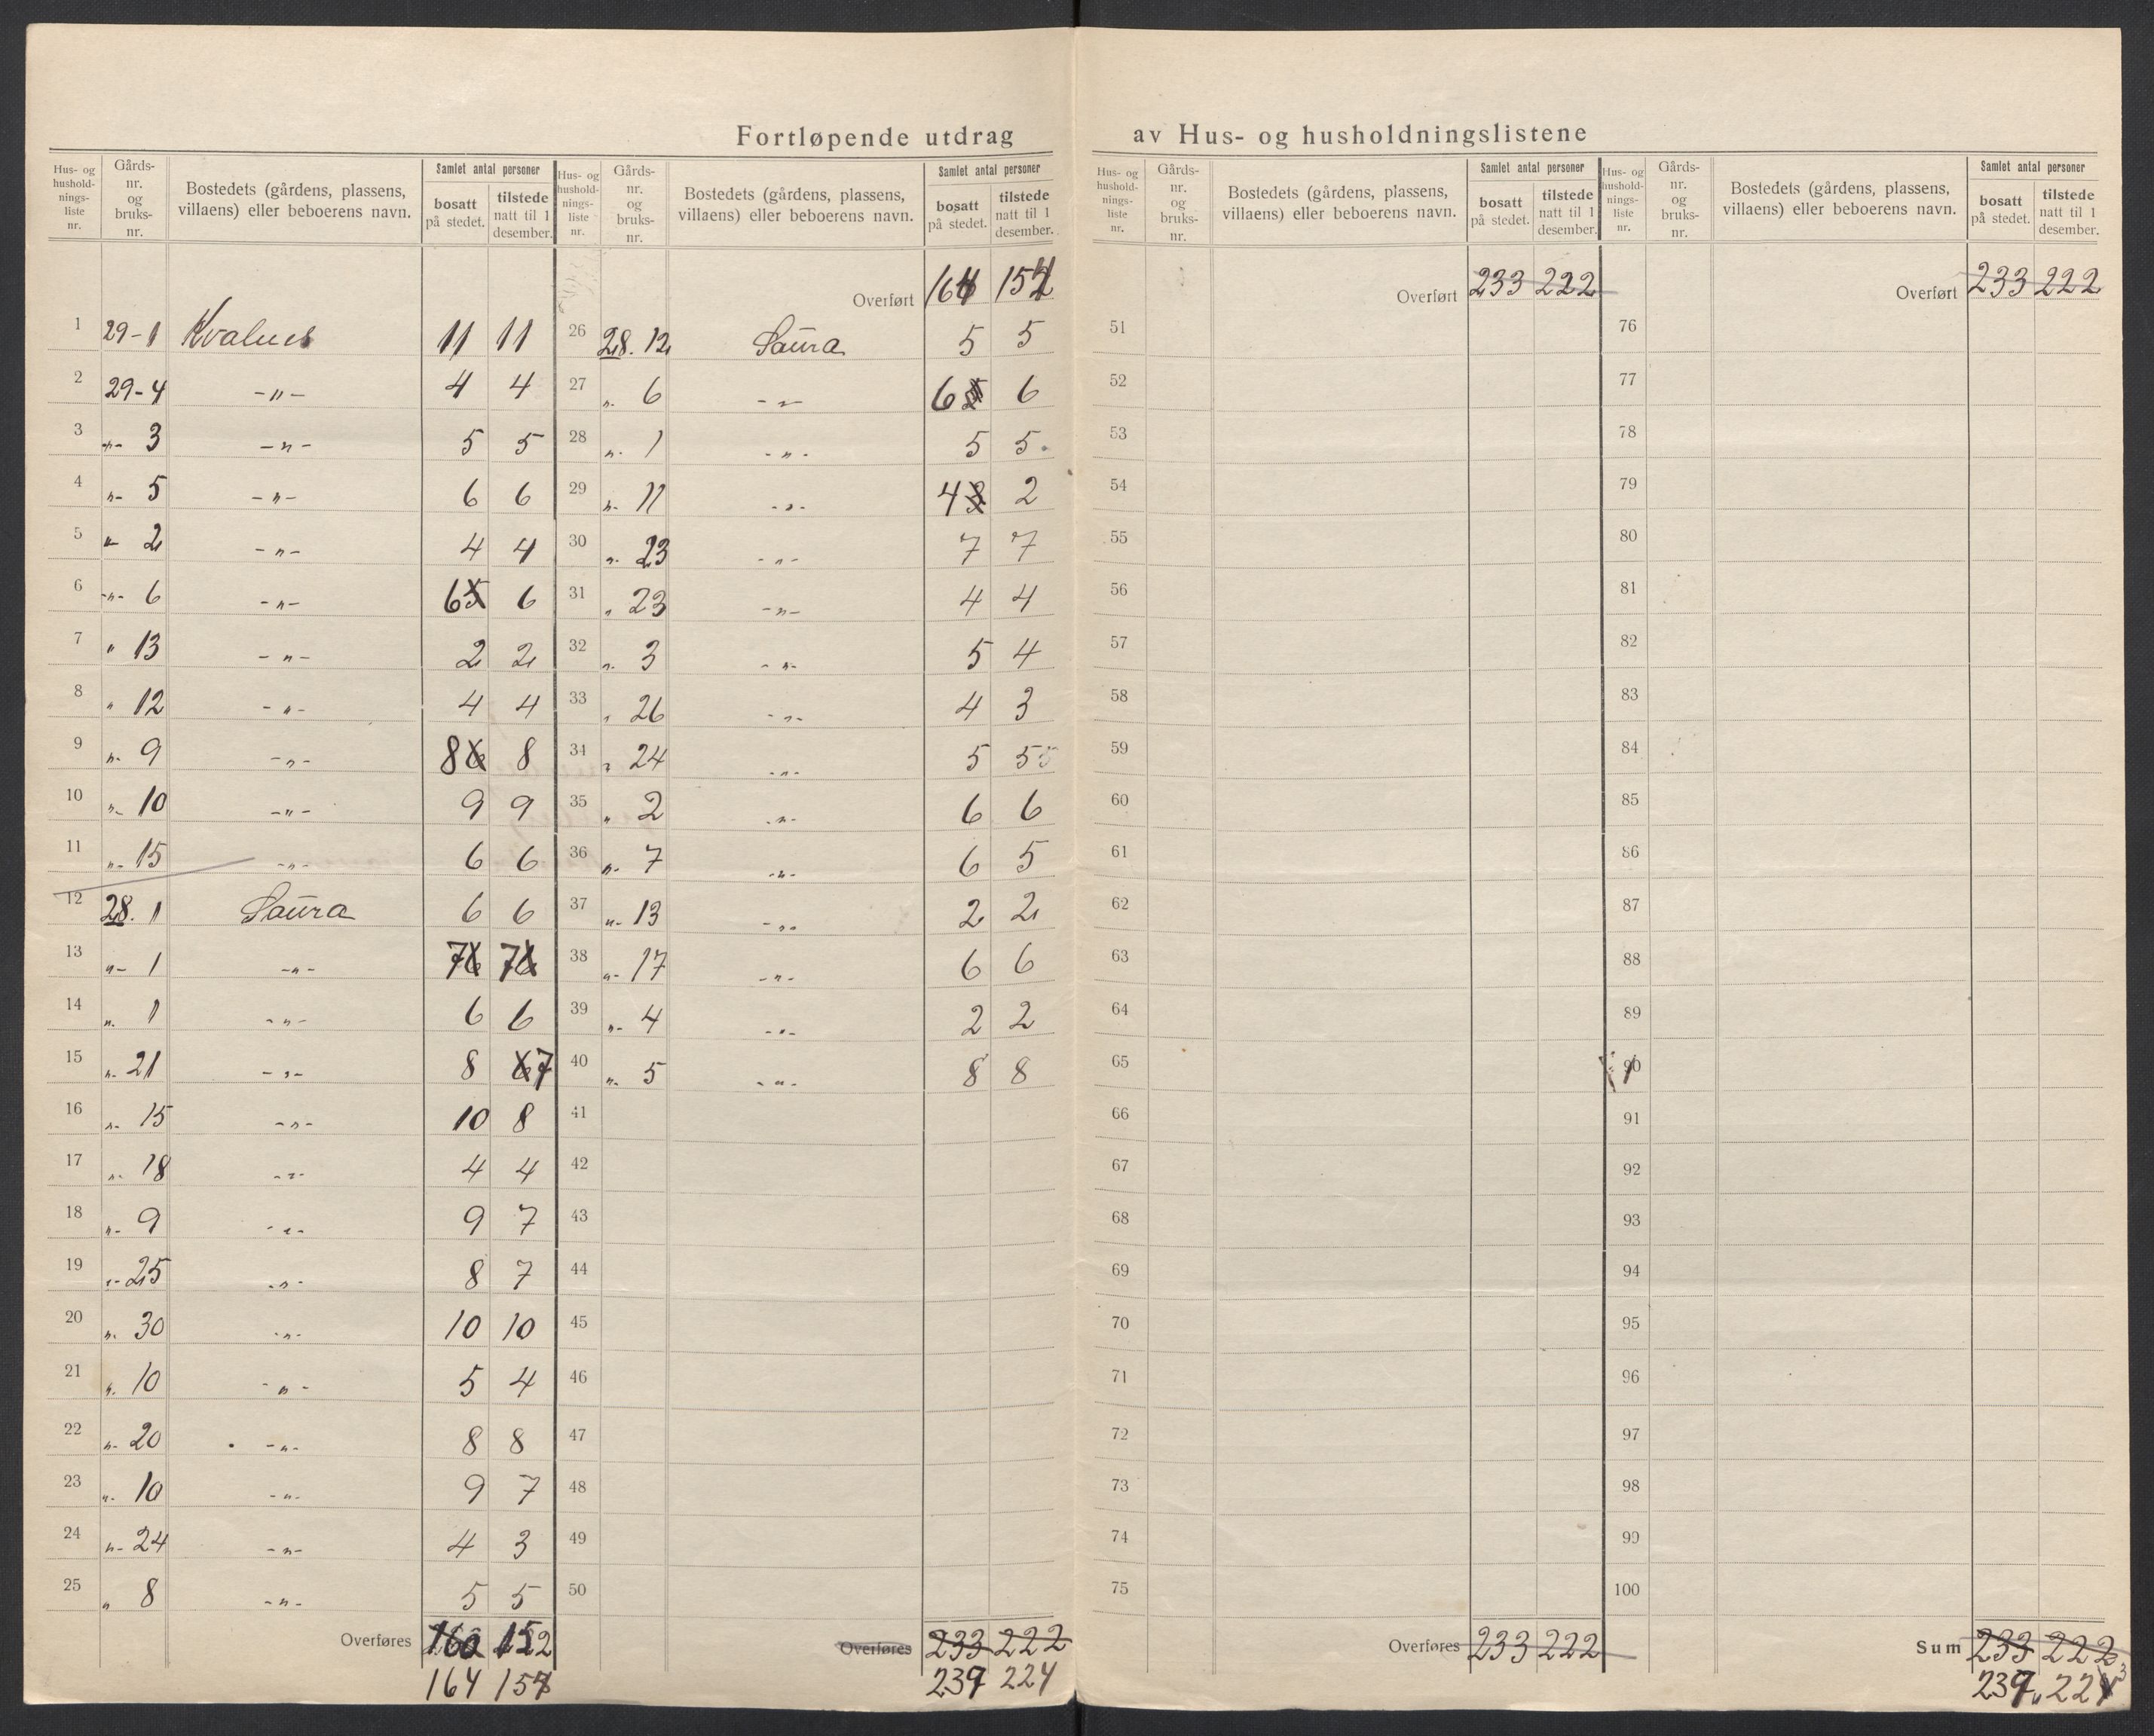 Fortløpende utdrag av Hus- og husholdningslistene
Hus- og hushold- nings- liste nr. | Gårds- nr. og bruks- nr. | Bostedets (gårdens, plassens, villaens) eller beboerens navn. | Samlet antal personer | bosatt på stedet. | tilstede natt til 1 desember.
1 29-1 Kvalnes 11 11
2 29-4 -"- 4 4
3 -"- 3 -"- 5 5
4 "- 5 -"- 6 6
5 "- 2 -"- 4 4
6 -"- 6 -"- 6 5 6
7 " 13 -"- 2 2
8 " 12 -"- 4 4
9 "- 9 -"- 8 6 8
10 "- 10 -"- 9 9
11 "- 15 -"- 6 6
12 28. 1 Saura 6 6
13 "- 1 -"- 7 6 7 6
14 ". 1 -"- 6 6
15 ". 21 -"- 8 6 7
16 ". 15 -"- 10 8
17 ". 18 -"- 4 4
18 "- 9 -"- 9 7
19 "- 25 -"- 8 7
20 ". 30 -"- 10 10
21 ". 10 -"- 5 4
22 "- 20 -"- 8 8
23 ". 10 -"- 9 7
24 "- 24 -"- 4 3
25 " 8 -"- 5 5
Overføres 160 152
164 157
Hus- og hushold- nings- liste nr. | Gårds- nr. og bruks- nr. | Bostedets (gårdens, plassens, villaens) eller beboerens navn. | Samlet antal personer | bosatt på stedet. | tilstede natt til 1 desember.
Overført 164 154
26 28. 12 Saura 5 5
27 ". 6 -"- 6 5 6
28 ". 1 -"- 5 5
29 ". 11 -"- 4 3 2
30 ". 23 -"- 7 7
31 " 23 -"- 4 4
32 ". 3 -"- 5 4
33 " 26 -"- 4 3
34 " 24 -"- 5 5
35 " 2 -"- 6 6
36 ". 7 -"- 6 5
37 "- 13 -"- 2 2
38 "- 17 -"- 6 6
39 "- 4 -"- 2 2
40 ". 5 -"- 8 8
41
42
43
44
45
46
47
48
49
50
Overføres 233 222
239 224
Hus- og hushold- nings- liste nr. | Gårds- nr. og bruks- nr. | Bostedets (gårdens, plassens, villaens) eller beboerens navn. | Samlet antal personer | bosatt på stedet. | tilstede natt til 1 desember.
Overført 233 222
51
52
53
54
55
56
57
58
59
60
61
62
63
64
65
66
67
68
69
70
71
72
73
74
75
Overføres 233 222
Hus- og hushold- nings- liste nr. | Gårds- nr. og bruks- nr. | Bostedets (gårdens, plassens, villaens) eller beboerens navn. | Samlet antal personer | bosatt på stedet. | tilstede natt til 1 desember.
Overført 233 222
76
77
78
79
80
81
82
83
84
85
86
87
88
89
90
91
92
93
94
95
96
97
98
99
100
Sum 233 222
239 224 3